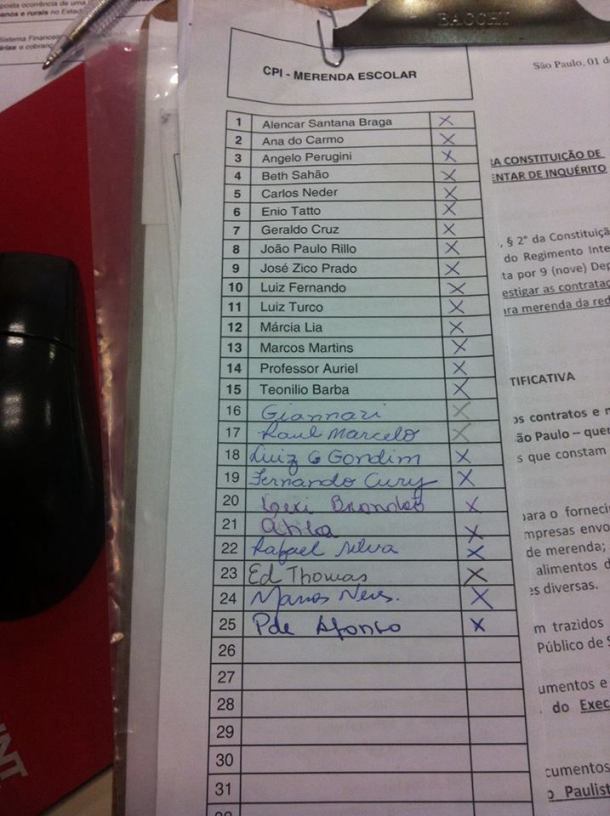 posta ocorrência de uma
anos e rurais no Estado
Sistema Finance
BACCHI
São Paulo, 01 d
CPI - MERENDA ESCOLAR
1 Alencar Santana Braga X
2 Ana do Carmo X
3 Angelo Perugini X
4 Beth Sahão X
5 Carlos Neder X
6 Enio Tatto X
7 Geraldo Cruz X
8 João Paulo Rillo X
9 José Zico Prado X
10 Luiz Fernando X
11 Luiz Turco X
12 Márcia Lia X
13 Marcos Martins X
14 Professor Auriel X
15 Teonilio Barba X
16 Giannazi X
17 Raul Marcelo X
18 Luiz G Gondim X
19 Fernando Cury X
20 X
21 Átila X
22 Rafael Silva X
23 Ed Thomas X
24 Marcos Neves. X
25 Pde Afonso X
26
27
28
29
30
31
RA CONSTITUIÇÃO DE
ENTAR DE INQUÉRITO
, § 2° da Constituiçã
do Regimento Inte
ta por 9 (nove) Dep
estigar as contrataç
ara merenda da red
TIFICATIVA
os contratos e
ão Paulo – quer
s que constam
para o forneci
mpresas envo
de merenda;
alimentos d
es diversas.
m trazidos
Público de S
umentos e
do Exec
cumentos
o Paulist
INT